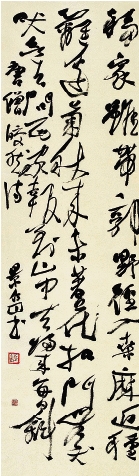 移家雖帶郭野徑入桑麻近種
籬邊菊秋來未著花扣門無犬
吠欲去問西家報道山中去歸來每日斜
唐僧皎然詩